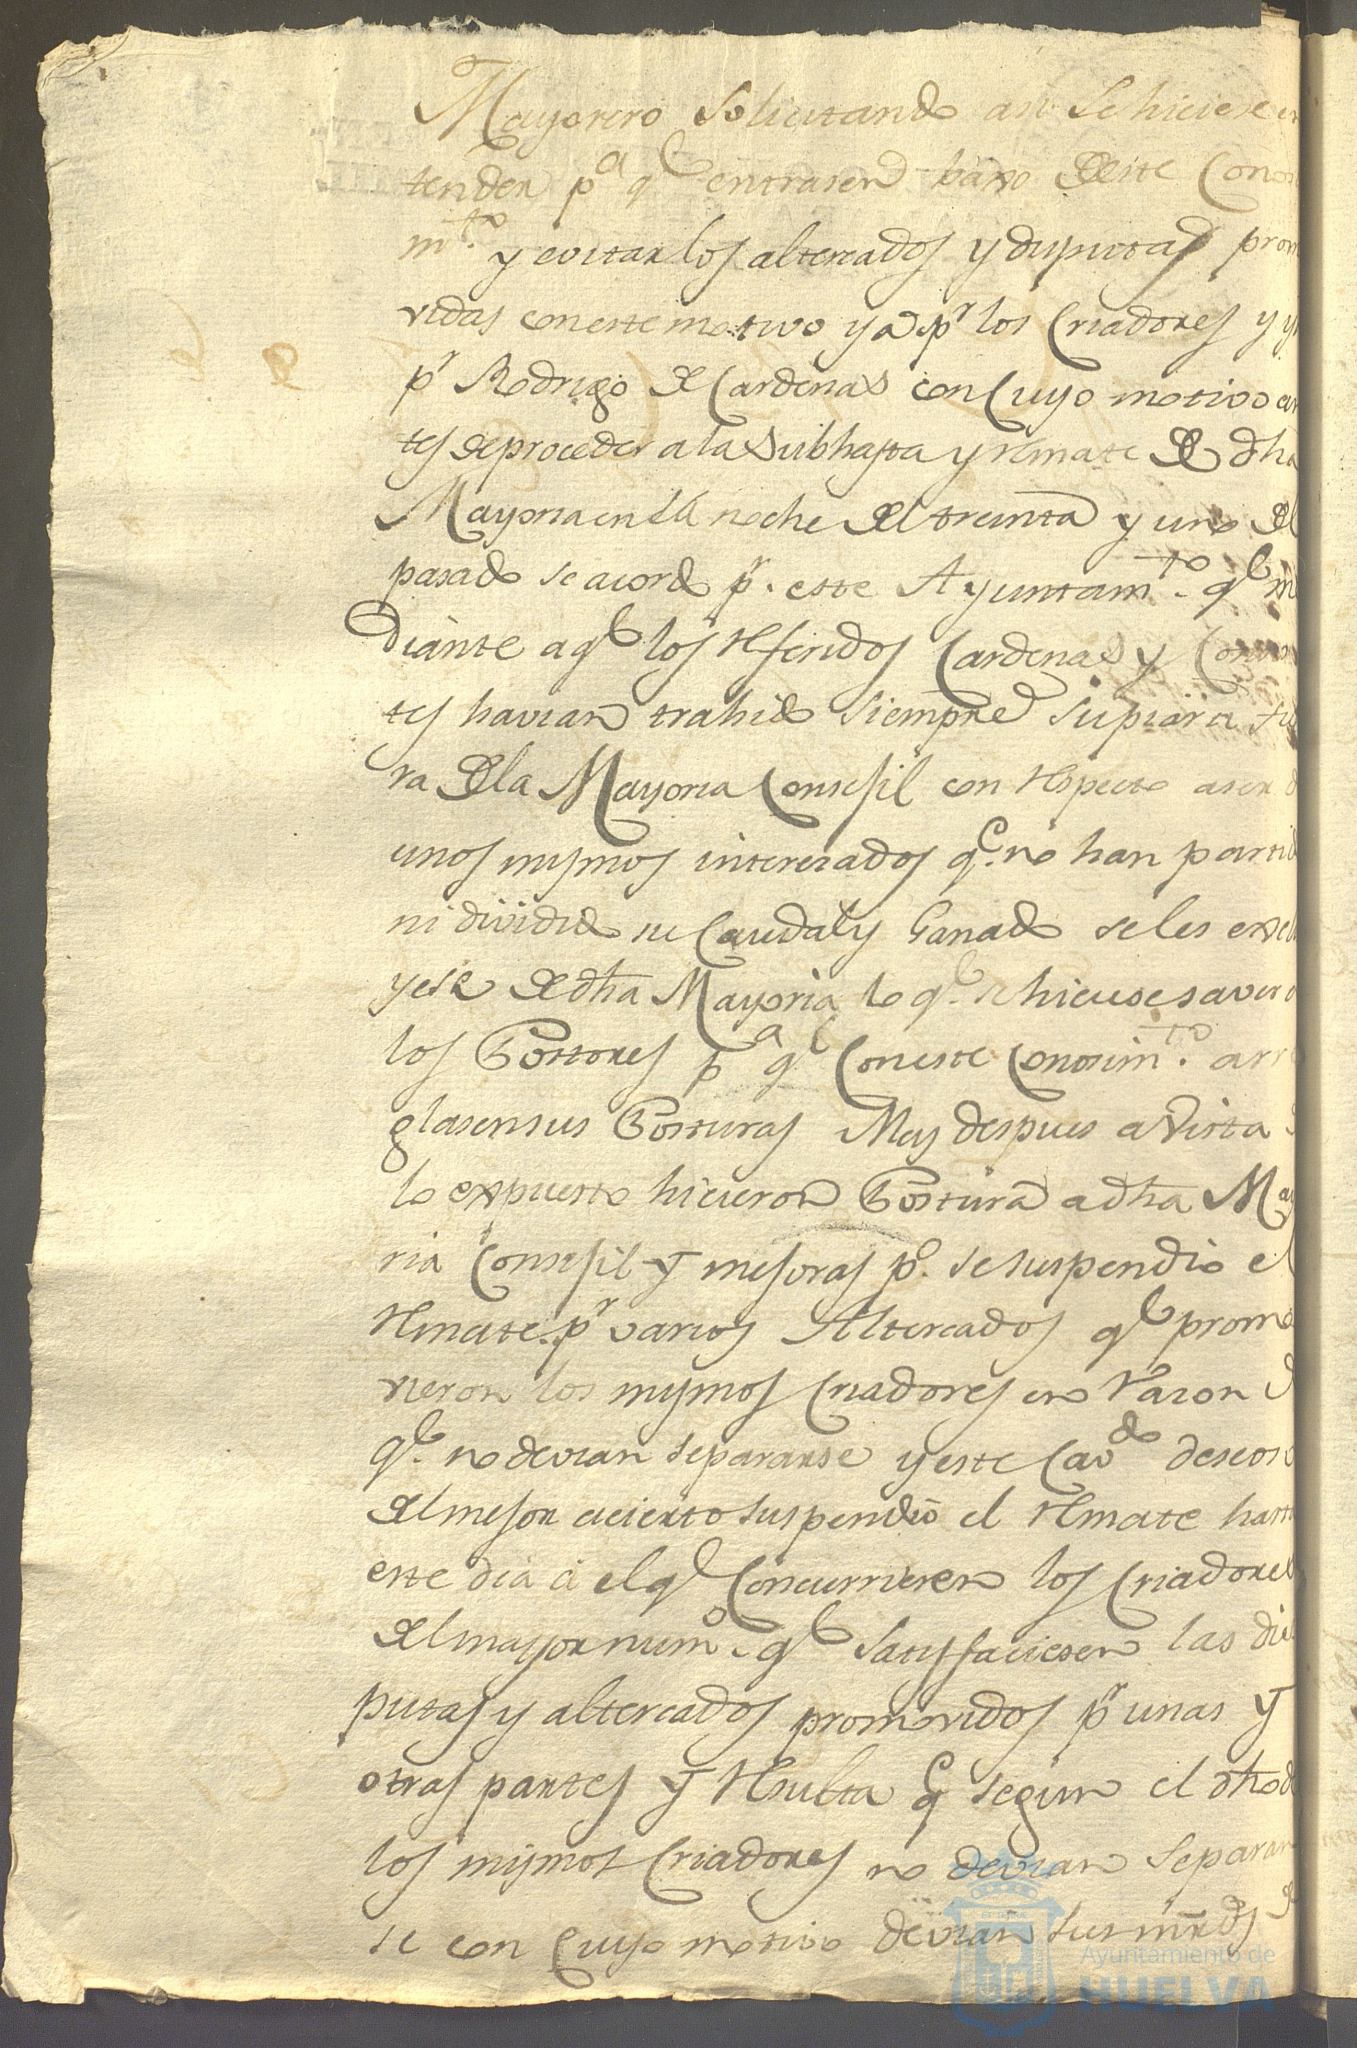 Mayorero Solicitando asi Se hiciese en
tender pa ql entrasen baxo deste Conos
mto. y evitar los altercados y disputas prom
vidas con este motivo ya pr los Criadores y y
pr Rodrigo de Cardenas con Cuyo motivo an
tes de proceder a la Subhasta y Rmate de dha
Mayoria en la noche del treinta y uno del
pasado se acordo pr. este Ayuntamto. ql m
diante a ql los Rferidos Cardenas y
tes havian trahido siempre Su piara fu
ra de la Mayoria Consejil con Rspecto a ser
unos mismos interesados qe. no han parti
ni dividido su Caudal y Ganado se les exclu
yese de dha Mayoria lo ql. se hiciese saver
los Postores pa ql Con este Conosimto. arr
glasen sus Posturas Mas despues a Vista
lo expuesto hicieron Postura a dha May
ria Consejil y mejoras po. se suspendio el
Rmate. pr varios Altercados ql promo
vieron los mismos Criadores en Razon d
ql. no devian separarse y este Cavdo deseoso
del mejor acierto suspendió el Rmate hasta
este dia á el ql Concurriesen los Criadores
del mayor numo. ql Satisfaciesen las dis
putas y altercados promovidos pr unas y
otras partes y Rsulta qe segun el dho de
los mismos Criadores no devian Separar
se con Cuyo motivo devian sus
Ayuntamiento de
HUELVA